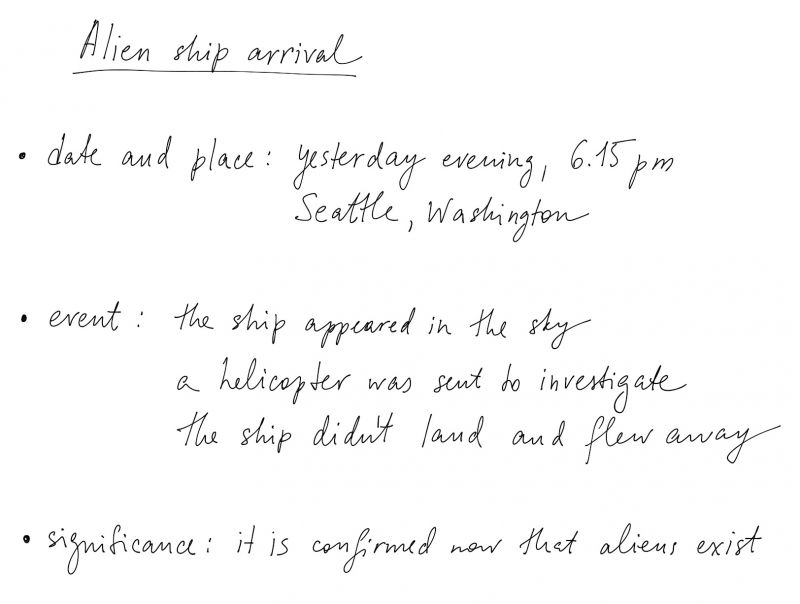 Alien ship arrival
• date and place: yesterday evening, 6.15 pm
Seattle, Washington
• event: the ship appeared in the sky
a helicopter was sent to investigate
the ship didn't land and flew away
• significance: it is confirmed now that aliens exist